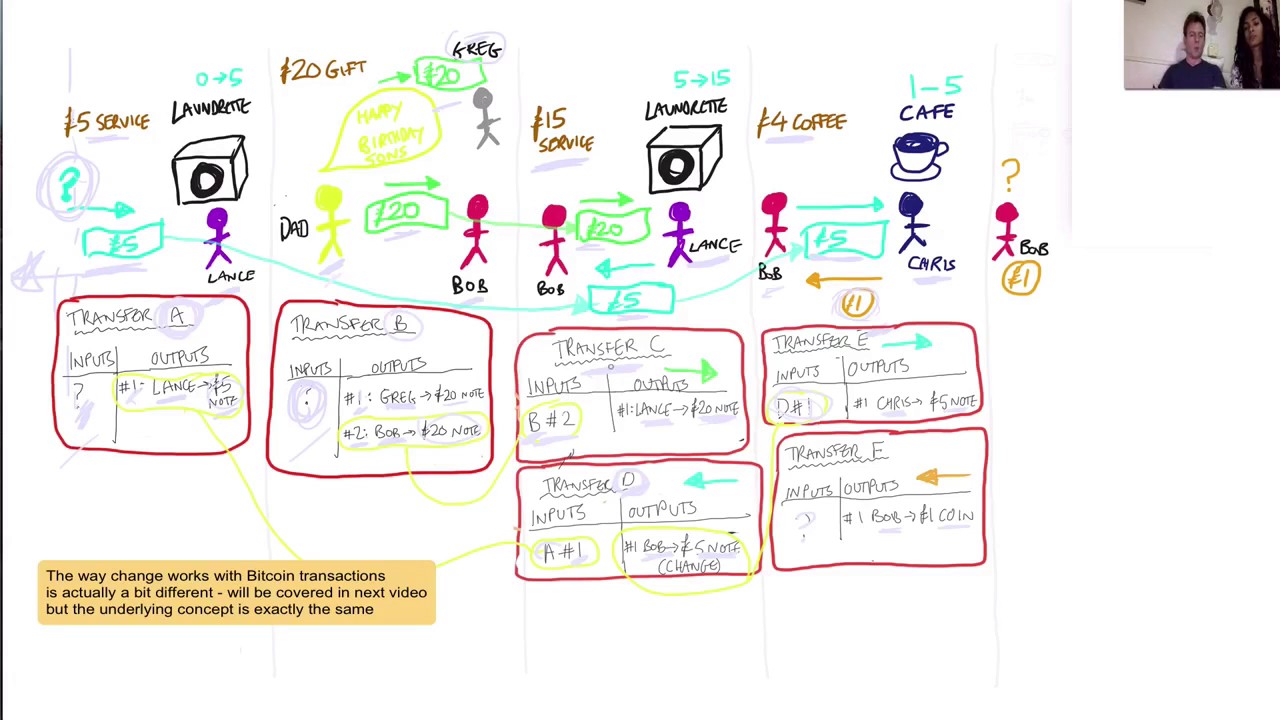 £5 SERVICE
0→5
LAUNDRETTE
?
£5
LANCE
£20 GIFT
GREG
£20
HAPPY
BIRTHDAY
SONS
DAD
£20
BOB
£15
SERVICE
5→15
LAUNDRETTE
£20
BOB
LANCE
£5
£4 COFFEE
1-5
CAFE
£5
BOB
CHRIS
£1
?
BOB
£1
TRANSFER A
INPUTS OUTPUTS
? #1: LANCE→£5
NOTE
TRANSFER B
INPUTS OUTPUTS
? #1: GREG→£20 NOTE
#2: BOB→£20 NOTE
TRANSFER C
INPUTS OUTPUTS
B#2 #1: LANCE→£20 NOTE
TRANSFER D
INPUTS OUTPUTS
A#1 #1 BOB→£5 NOTE
(CHANGE)
TRANSFER E
INPUTS OUTPUTS
D#1 #1 CHRIS→£5 NOTE
TRANSFER E
INPUTS OUTPUTS
? #1 BOB→£1 COIN
The way change works with Bitcoin transactions
is actually a bit different - will be covered in next video
but the underlying concept is exactly the same